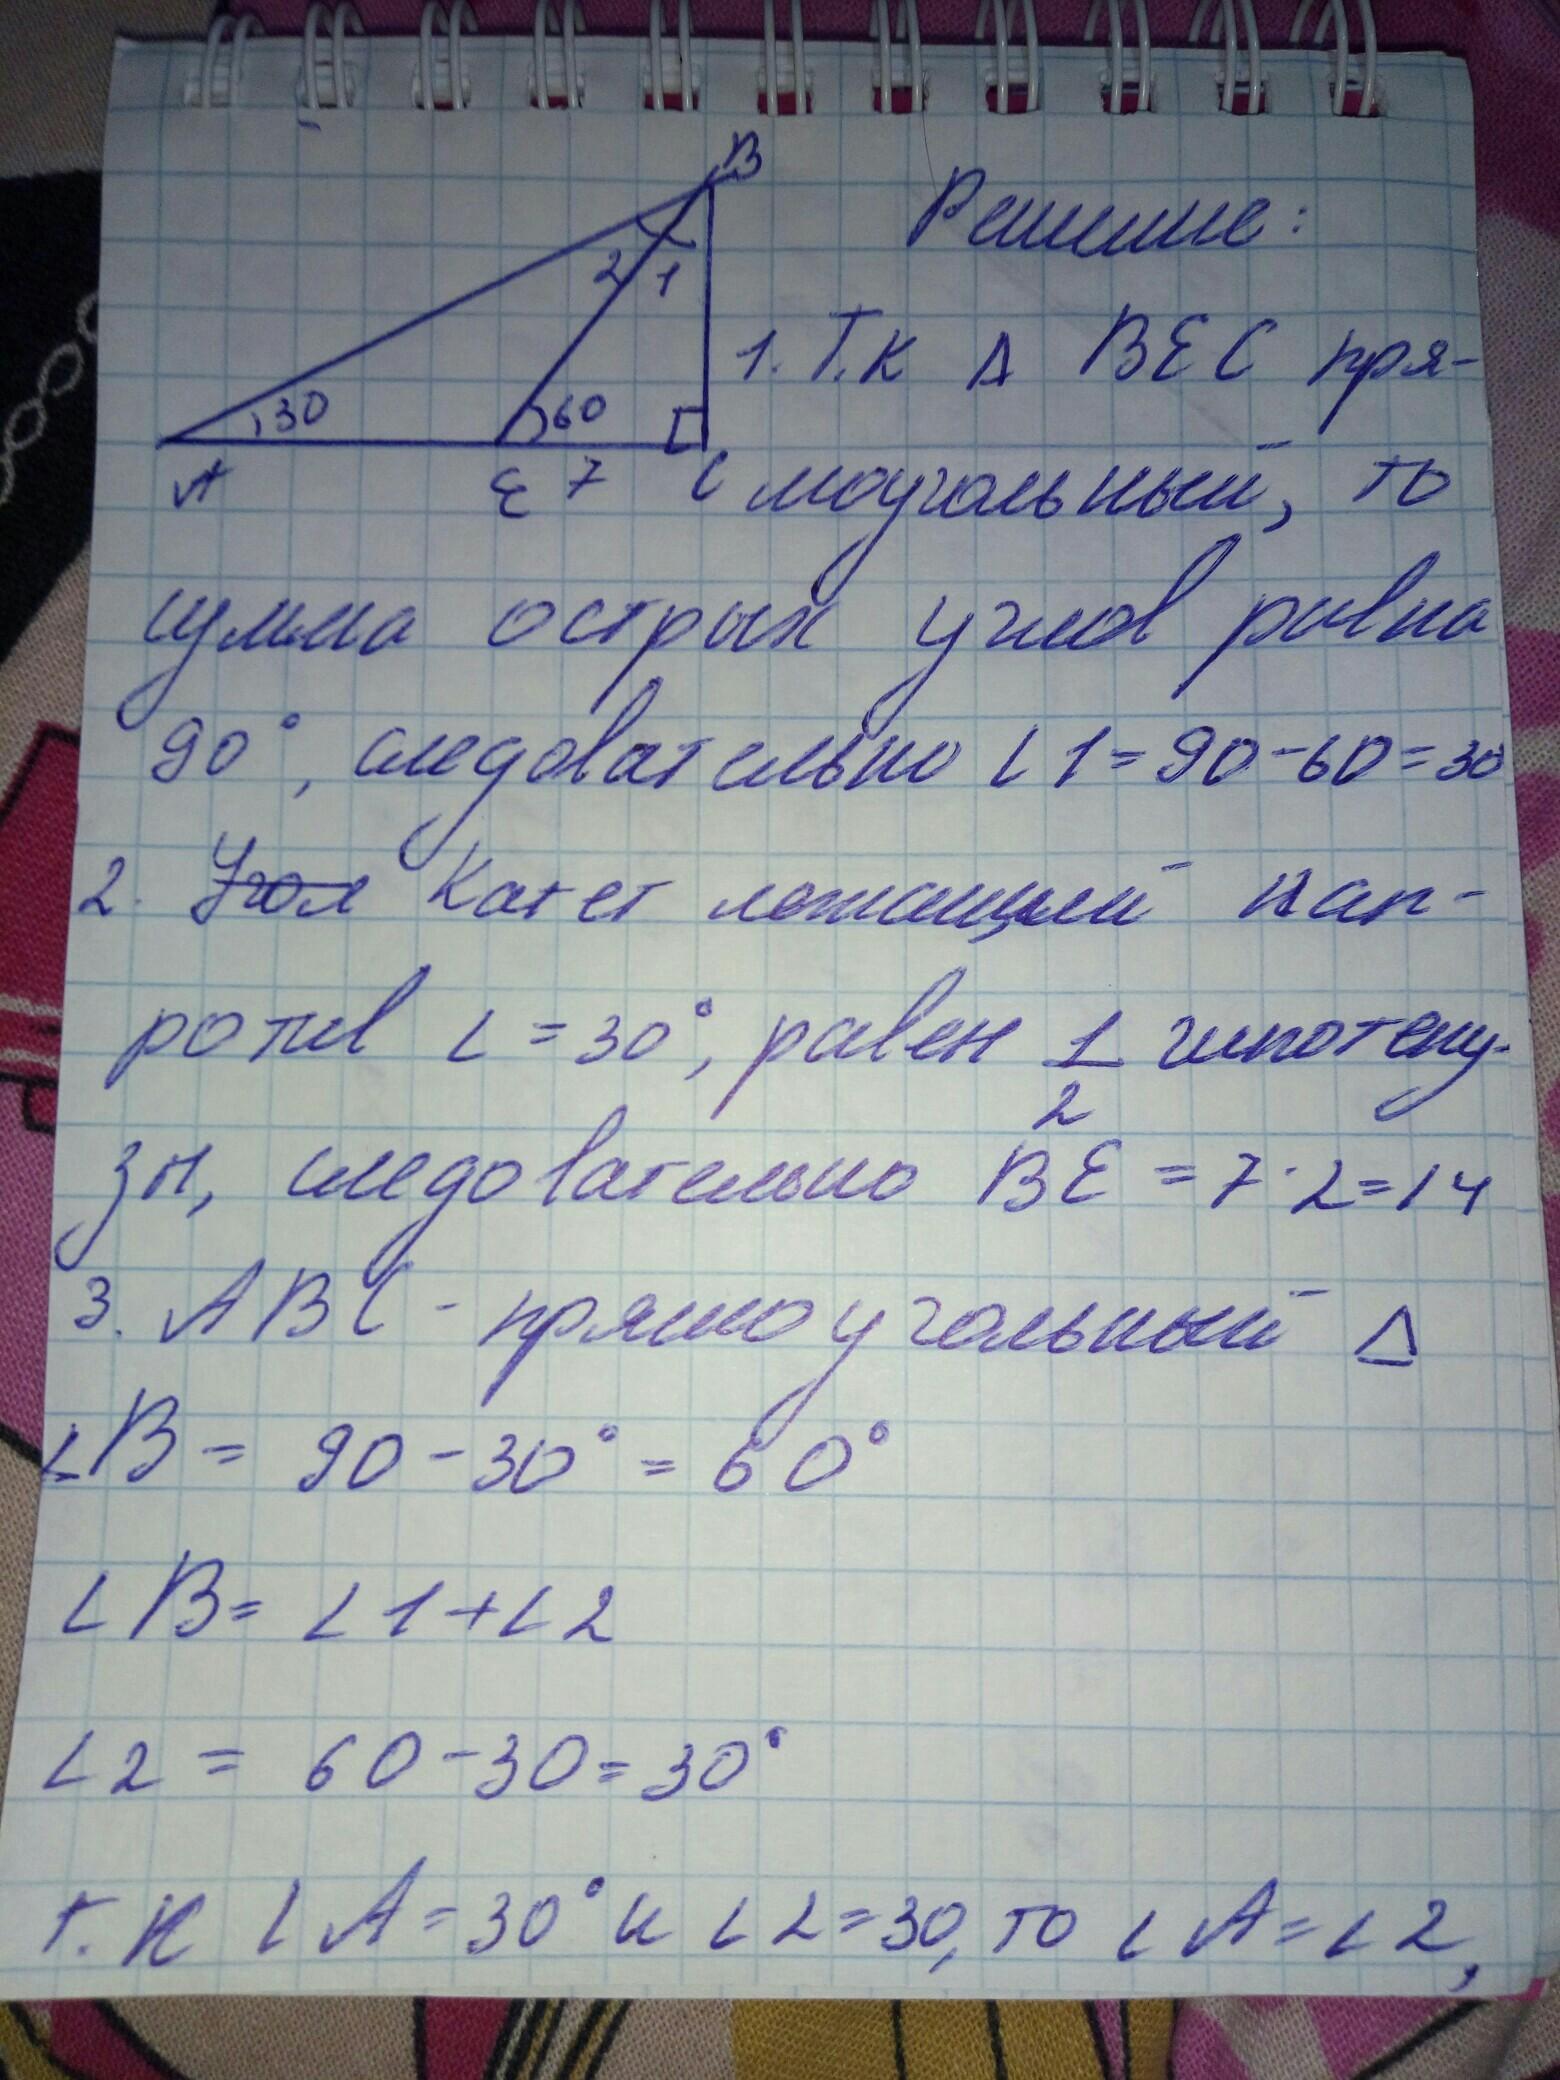 B
Решение:
2 1
30
60
A E 7 C
1. Т.к Δ BEC пря-
моугольный, то
сумма острых углов равна
90°, следовательно ∠1=90-60=30
2. Угол Катет лежащий нап-
ротив ∠=30°, равен 1/2 гипотену-
зы, следовательно BE = 7·2=14
3. ABC - прямоугольный Δ
∠B = 90-30° = 60°
∠B= ∠1+∠2
∠2 = 60-30=30°
т.к ∠A=30° и ∠2=30, то ∠A=∠2,